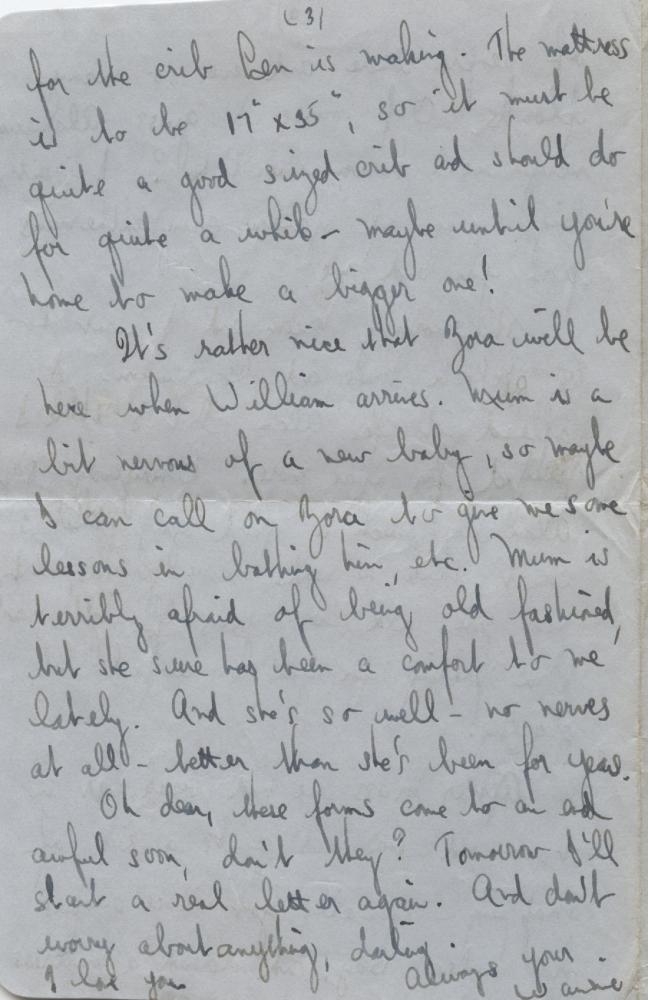 (3)
for the crib Ben is making. The mattress
is to be 17" x 35", so it must be
quite a good sized crib and should do
for quite a while - maybe until you're
home to make a bigger one!
It's rather nice that Zora will be
here when William arrives. Mum is a
bit nervous of a new baby, so maybe
I can call on Zora to give me some
lessons in bathing him, etc. Mum is
terribly afraid of being old fashioned,
but she sure has been a comfort to me
lately. And she's so well - no nerves
at all - better than she's been for years.
Oh dear, these forms come to an end
awful soon, don't they? Tomorrow I'll
start a real letter again. And don't
worry about anything, darling.
I love you Always your